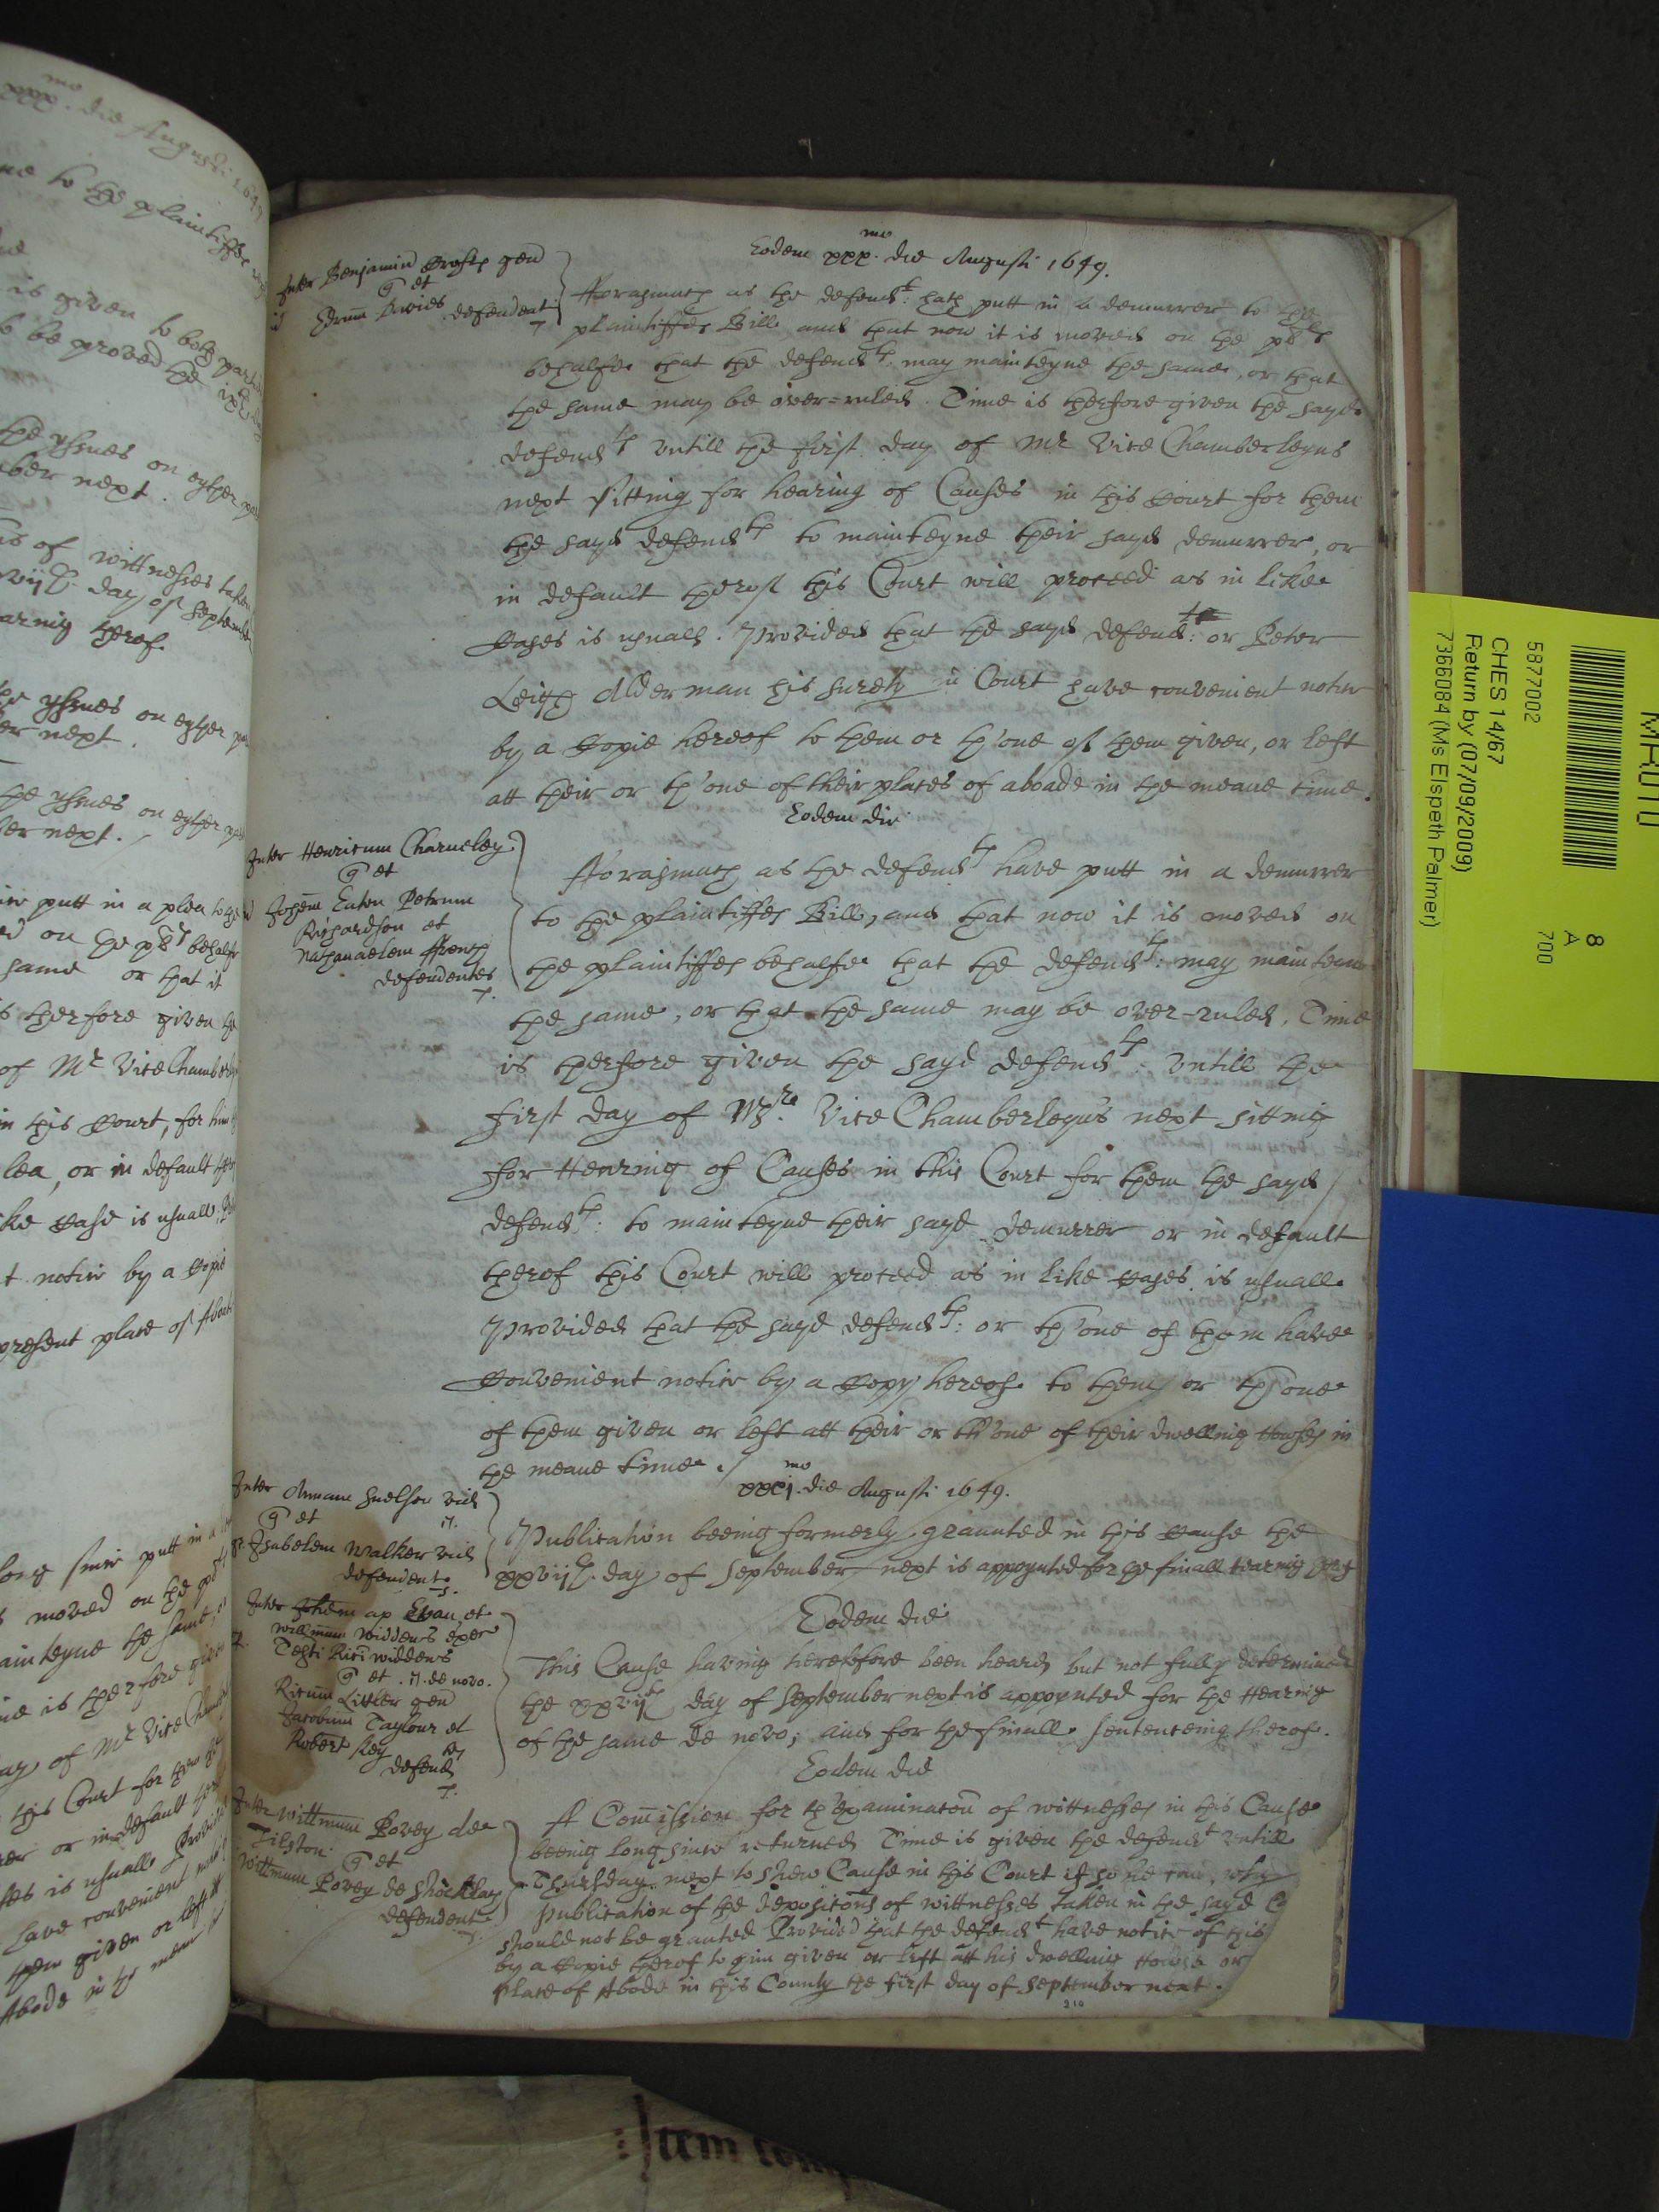 xxx.mo die Augusti 1649
to the plaintiffes
is given to both
to be proved the
the yssues on eyther
ber next.
of wittnesses taken
day of September
therof.
yssues on eyther
er next.
the yssues on eyther
er next.
putt in a plea to
on the behalfe
same or that it
is therfore given the
of Mr Vice Chamb
in this Court, for him
lea, or in default
ke Case is usuall.
t notice by a Copie
present place of Aboad
long since putt in a
moved on the
mainteyne the same, or
me is therfore given
ay of Mr Vice
this Court for
er or in default
ses is usuall Provided
have convenient
them given or left att
Abode in the mean
Eodem xxx.mo die Augusti 1649.
Inter Benjamin Crosse gen
q et
Davies defendent
Forasmuch as the defendt: hath putt in a demurrer to the
plaintiffes Bill and that now it is moved on the
behalfe that the defendts: may mainteyne the same, or that
the same may be over=ruled. Time is therfore given the sayd
defendts untill the first day of Mr Vice Chamberleyns
next sitting for hearing of Causes in this Court for them
the sayd defendts to mainteyne their sayd demurrer, or
in default therof this Court will proceed as in like
Cases is usuall. Provided that the sayd defend: or Peter
Leigh Alderman his surety in Court have convenient notice
by a Copie hereof to them or th'one of them given, or left
att their or th'one of their places of aboade in the meane time.
Eodem die
Inter Henricum Charneley
q et
Johem Eaton Petrum
Richardson et
Nathanaelem ffrench
defendentes
Forasmuch as the defendts have putt in a demurrer
to the plaintiffes Bill, and that now it is moved on
the plaintiffes behalfe that the defendts: may mainteyne
the same, or that the same may be over-ruled, Time
is therfore given the sayd defendts: untill the
first day of Mr. Vice Chamberleyn's next sitting
for Hearing of Causes in this Court for them the sayd
defendts: to mainteyne their sayd demurrer or in default
therof this Court will proceed as in like Cases is usuall.
Provided that the sayd defendts: or th'one of them have
Convenient notice by a Copy hereof to them or th'one
of them given or left att their or th'one of their dwelling Howses in
the meane time.
xxxj.mo die Augusti 1649.
Inter Annam Snelson vid
q et
Isabelem Walker vid
defendent:
Publication beeing formerly graunted in this Cause the
xxvijth. day of September next is appoynted for the finall hearing
Eodem die
Inter Johem ap Evan et
Willmum Widdens exec
Testi Rici Widdens
q et de novo.
Ricum Littler gen
Jacobum Taylour et
Robert Key
defendts
This Cause having heretofore been heard but not fully determined
the xxvijth day of September next is appoynted for the Hearing
of the same de novo; and for the finall sentenceing therof.
Eodem die
Inter Willmum Povey de
Tilston
q et
Willmum Povey de Shocklay
defendent
A Comission for th'examinacon of wittnesses in this Cause
beeing long since returned Time is given the defendt untill
Thursday next to shew Cause in this Court if so he can, why
publication of the deposicons of wittnesses taken in the sayd
should not be granted Provided that the defendt have notice of this
by a Copie therof to him given or left att his dwelling Howse or
place of Abode in this County the first day of September next.
210
5877002
CHES 14/67
Return by (07/09/2009)
7366084 (Ms Elspeth Palmer)
8
A
700
Item